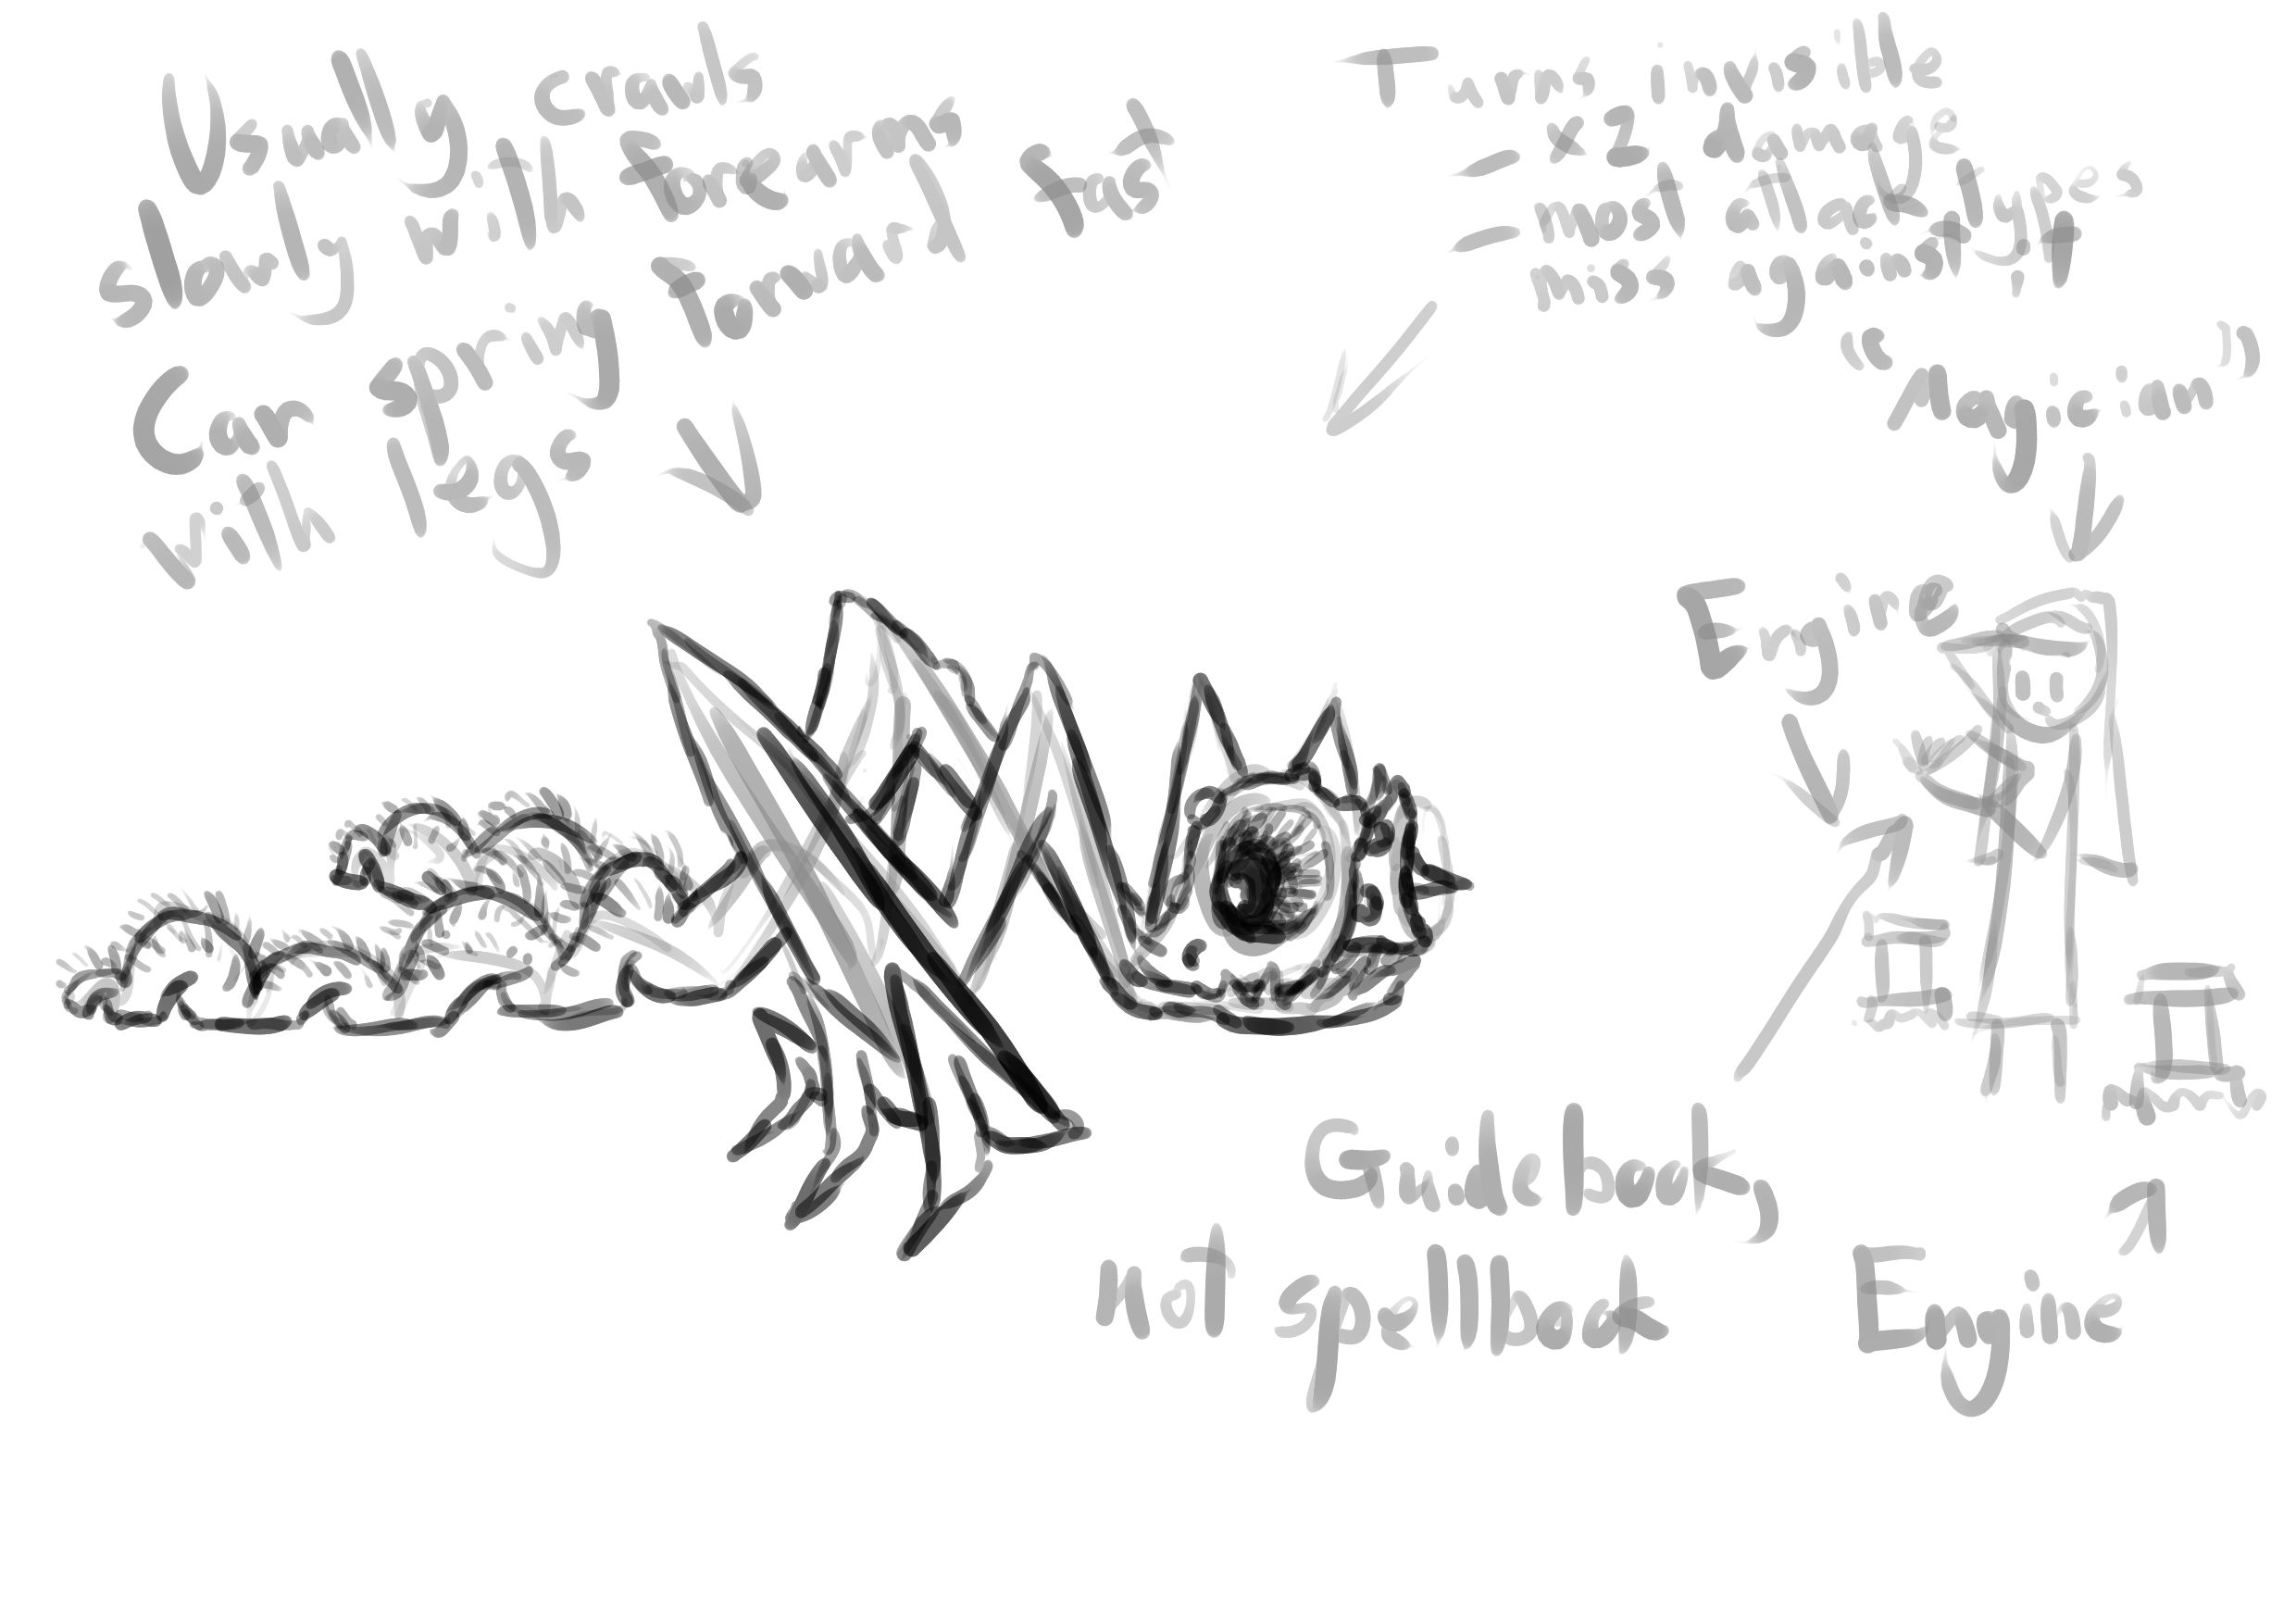 Usually crawls
slowly with forearms
Can spring forward fast
with legs
Turns invisible
- x2 damage
- most attack types
miss against it
"Magician"
Engine
Guidebook,
not spellbook
Engine